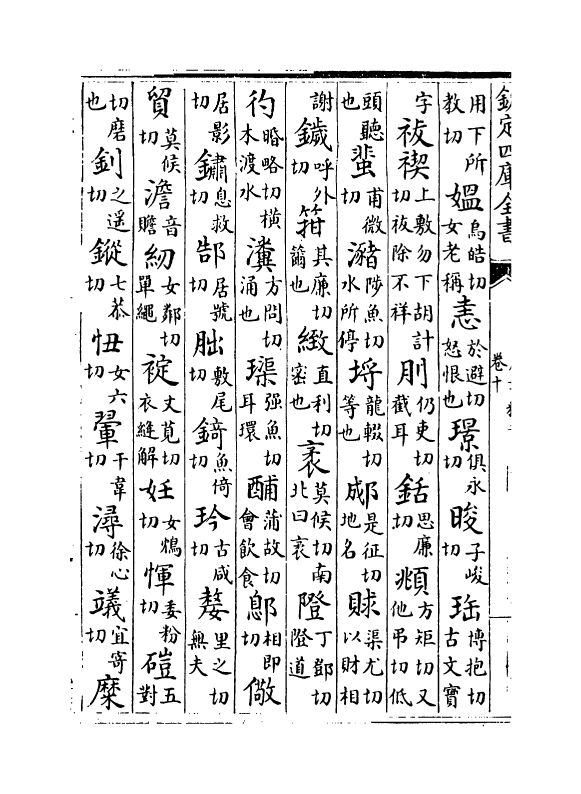 欽定四庫全書
卷十
用下所教切媼烏皓切女老稱恚於避切怒恨也璟俱永切晙子峻切珤博抱切古文寳
字祓禊上敷勿下胡計切祓除不祥刵仍吏切截耳銛思廉切頫方矩切又他弔切低
頭聽也蜚甫微切瀦陟魚切水所停埒龍輟切等也郕是征切地名賕渠尤切以財相
謝鐬呼外切箝其廉切籋也緻直利切密也袤莫候切南北曰袤隥丁鄧切隥道
彴略切横木渡水瀵方問切涌也璖强魚切耳環酺蒲故切會飲食鄎相即切儆
居影切鏽息救切郜居號切朏敷尾切錡魚倚切玪古咸切嫠里之切無夫
貿莫候切澹音贍紉女鄰切單繩丈莧切衣縫解妊女鴆切惲委粉切磑五對
切磨也釗之遥切鏦七恭切忸女六切翬干韋切潯徐心切宜寄切糜